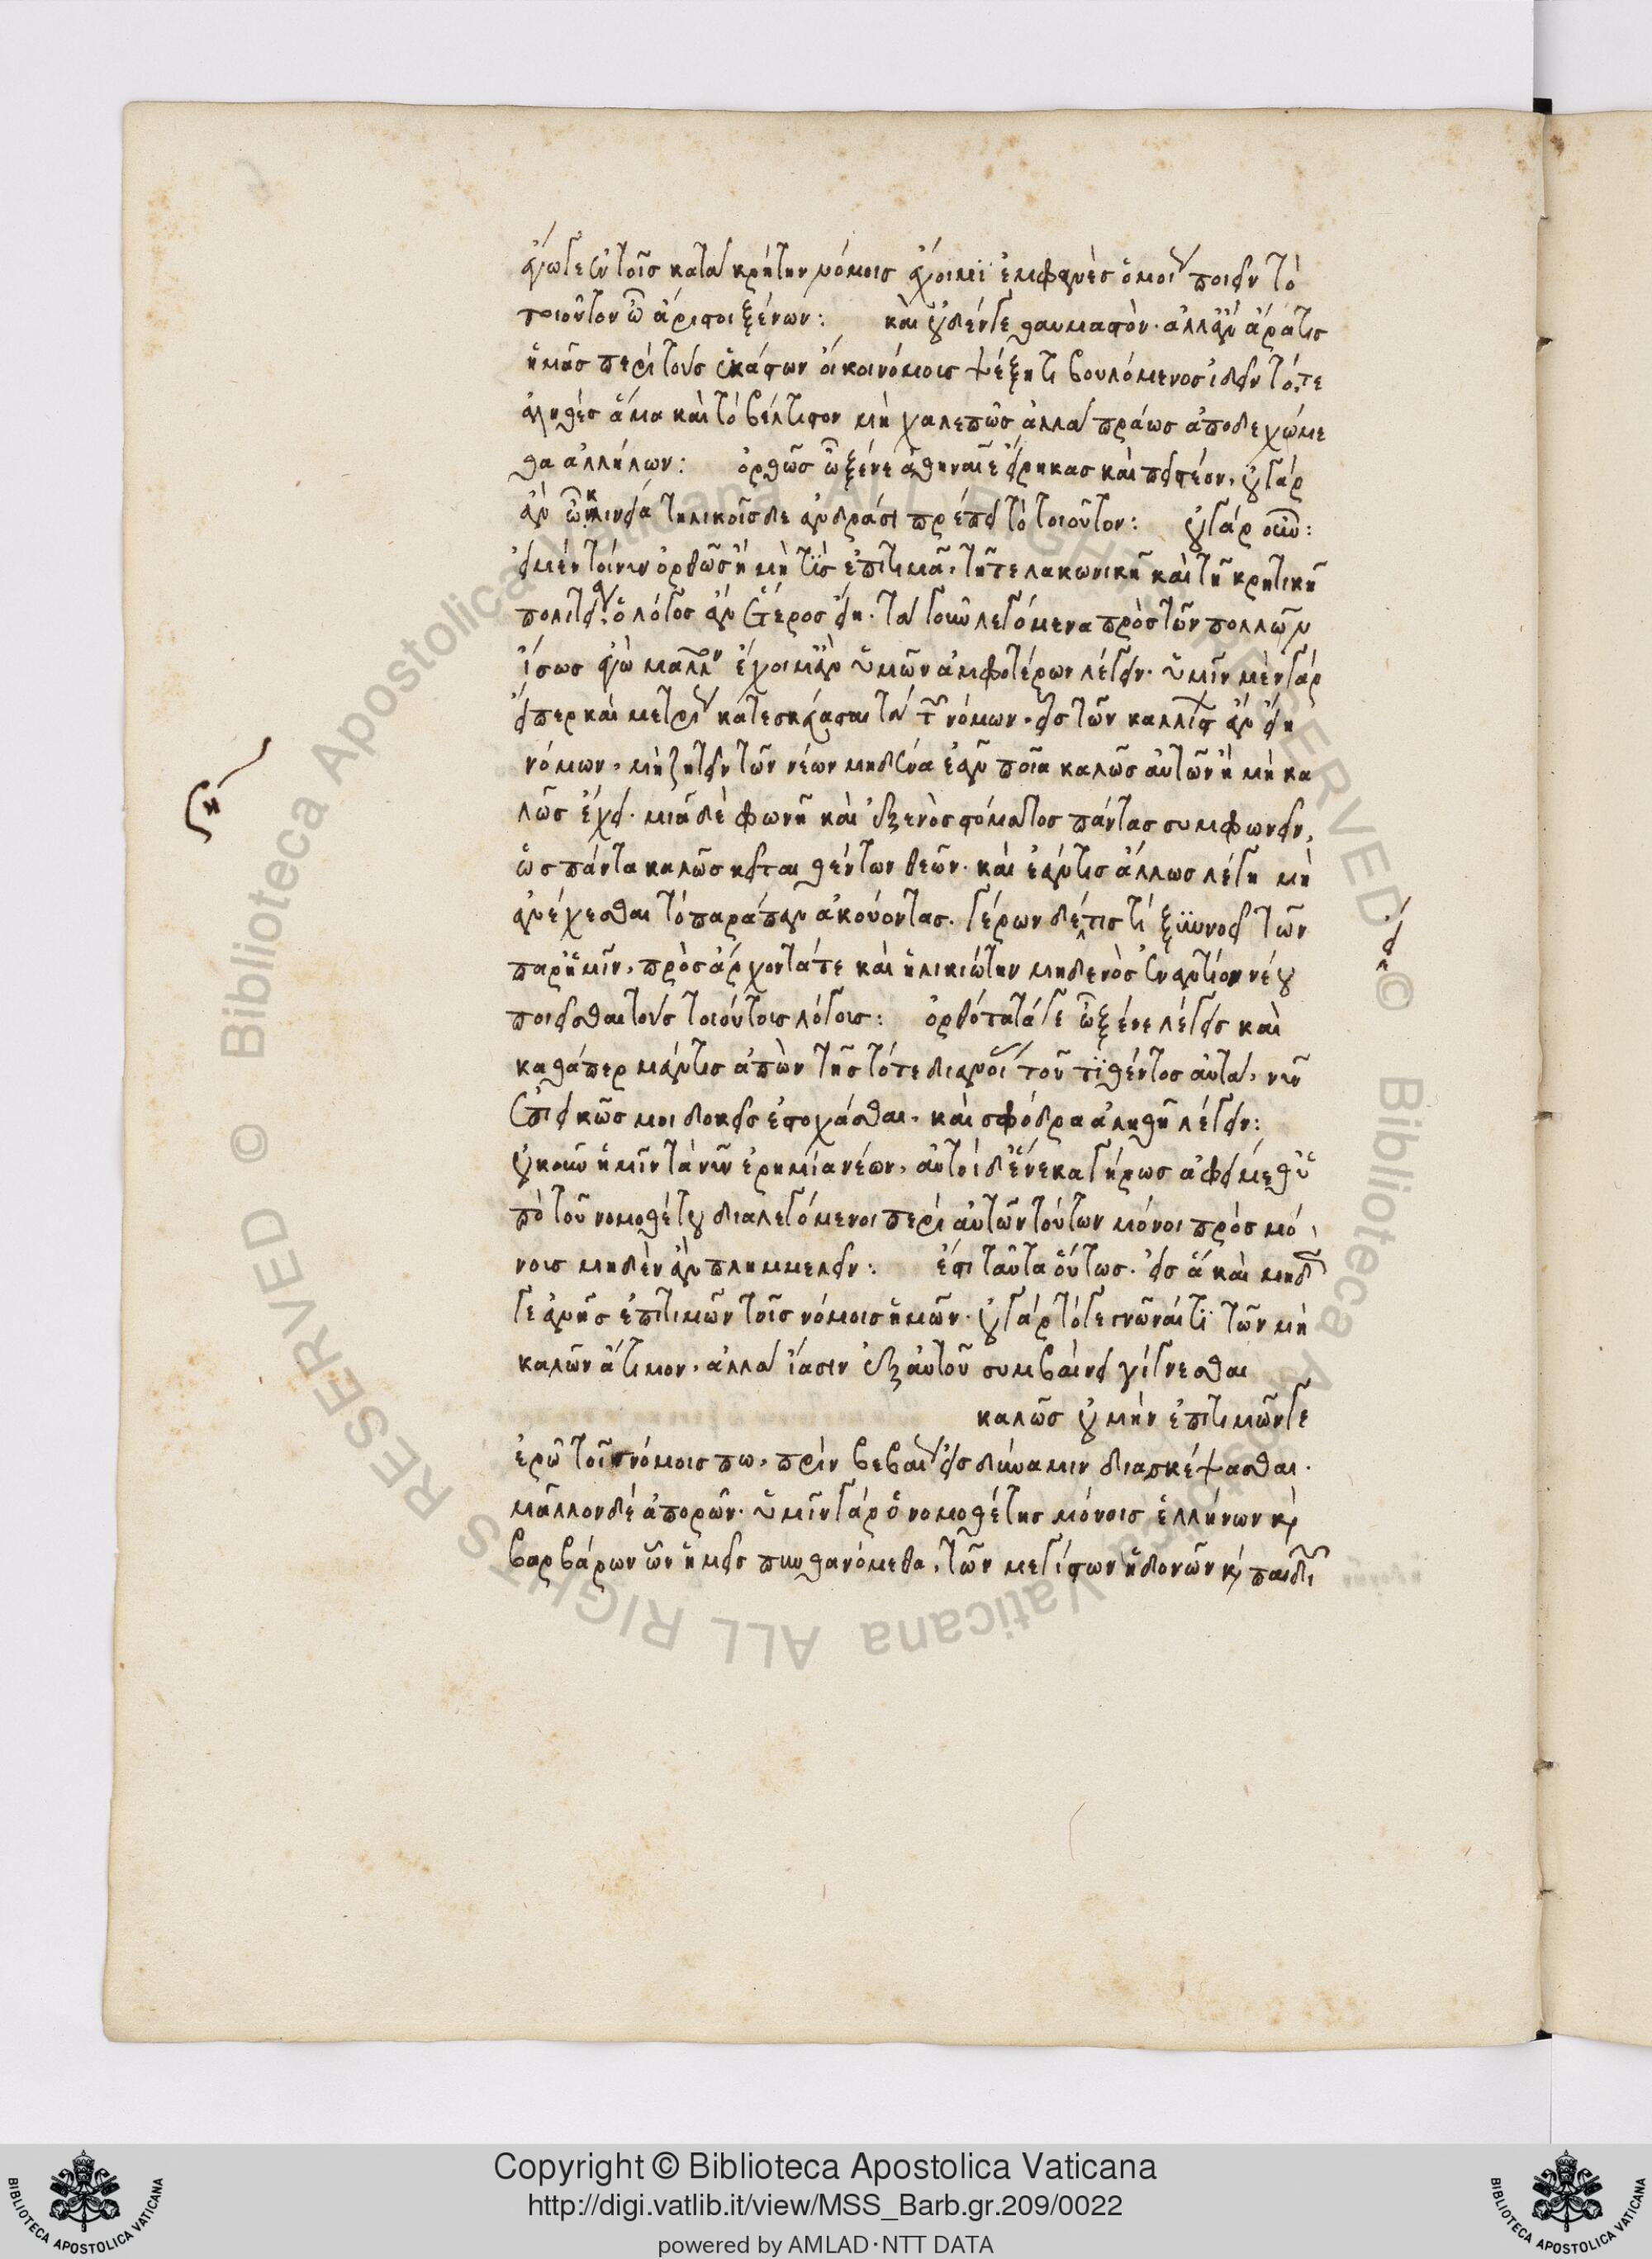 ἐγώ γε ἐν τοῖς κατὰ κρήτην νόμοις ἔχοιμϊ ἐμφανὲς ὁμοίως ποιεῖν τὸ
τοιοῦτον ὦ ἄριστοι ξένων: καὶ οὐδέν γε θαυμαστὸν. ἀλλ' ἂν ἄρα τις
ἡμᾶς περὶ τοὺς ἑκάστων οἴκοι νόμοις ψέξῃ τι βουλόμενος ἰδεῖν τό, τε
ἀληθὲς ἅμα καὶ τὸ βέλτιστον μὴ χαλεπῶς ἀλλὰ πράως ἀποδεχώμε
θα ἀλλήλων: ὀρθῶς ὦ ξένε ἀθηναῖε εἴρηκας καὶ πειστέον, οὐ γὰρ
ἂν ὦ κλινεία τηλικοῖσδε ἀνδράσι πρέπει τὸ τοιοῦτον: οὐ γὰρ οὖν:
εἰ μὲν τοίνυν ὀρθῶς ἢ μὴ τῒς ἐπιτιμᾶ, τῆ τε λακωνικῆ καὶ τῆ κρητικῆ
πολιτεία. ὁ λόγος ἂν ἕτερος εἴη. τὰ γοῦν λεγόμενα πρὸς τῶν πολλῶν
ἴσως ἐγὼ μᾶλλον ἔχοιμ' ἂν ὑμῶν ἀμφοτέρων λέγειν. ὑμῖν μὲν γὰρ
εἴπερ καὶ μετρίως κατεσκεύασται τὰ τῶν νόμων, εἷς τῶν καλλίστων ἂν εἴη
νόμων, μὴ ζητεῖν τῶν νέων μηδένα ἐᾶν ποῖα καλῶς αὐτῶν ἢ μὴ κα
λῶς ἔχει. μιᾶ δὲ φωνῆ καὶ ἐξ ἑνὸς στόματος πάντας συμφωνεῖν,
ὡς πάντα καλῶς κεῖται θέντων θεῶν. καὶ ἐάν τις ἄλλως λέγη μὴ
ἀνέχεσθαι τὸ παράπαν ἀκούοντας. γέρων δέ τις τί ξϋννοεῖ τῶν
παρ' ἡμῖν, πρὸς ἄρχοντά τε καὶ ἡλικιώτην μηδενὸς ἐναντίον νέου
ποιεῖσθαι τοὺς τοιούτοις λόγοις: ὀρθότατά γε ὦ ξένε λέγεις καὶ
καθάπερ μάντις ἀπὼν τῆς τότε διανοίας τοῦ τϊθέντος αὐτὰ, νῦν
ἐπιεικῶς μοι δοκεῖς ἐστοχάσθαι, καὶ σφόδρα ἀληθῆ λέγειν:
οὐκοῦν ἡμῖν τὰ νῦν ἐρημία νέων, αὐτοὶ δ' ἕνεκα γήρως ἀφείμεθ' ὑ
πὸ τοῦ νομοθέτου διαλεγόμενοι περὶ αὐτῶν τούτων μόνοι πρὸς μό,
νοις μηδὲν ἂν πλημμελεῖν: ἔστι ταῦτα οὕτως. εἰς ἃ καὶ μηδέν
γε ἀνῇς ἐπιτιμῶν τοῖς νόμοις ἡμῶν. οὐ γὰρ τό γε γνῶναί τϊ τῶν μὴ
καλῶν ἄτιμον, ἀλλὰ ἴασιν ἐξ αὐτοῦ συμβαίνει γίγνεσθαι
καλῶς οὐ μὴν ἐπιτιμῶν γε
ἐρῶ τοῖς νόμοις πω, πρὶν βεβαίως εἰς δύναμιν διασκέψασθαι.
μᾶλλον δὲ ἀπορῶν. ὑμῖν γὰρ ὁ νομοθέτης μόνοις ἑλλήνων καὶ
βαρβάρων ὧν ἡμεῖς πυνθανόμεθα, τῶν μεγίστων ἡδονῶν καὶ παιδι
Copyright © Biblioteca Apostolica Vaticana
http://digi.vatlib.it/view/MSS_Barb.gr.209/0022
powered by AMLAD·NTT DATA
BIBLIOTECA APOSTOLICA VATICANA
BIBLIOTECA APOSTOLICA VATICANA
© Biblioteca Apostolica Vaticana ALL RIGHTS RESERVED
© Biblioteca Apostolica Vaticana ALL RIGHTS RESERVED